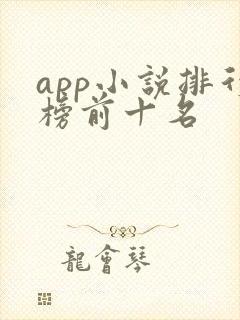 app小說排行
榜前十名
龍會琴